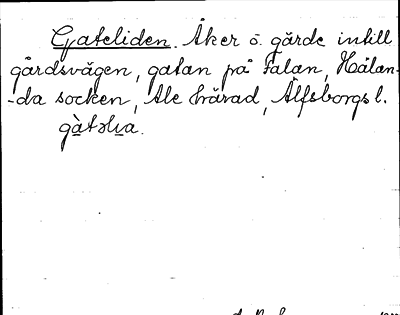 Gateliden. Åker o. gärde intill
gårdsvägen, gatan på Falan, Hålan-
-da socken, Ale härad, Älfsborgs l.
gàtəlìa.